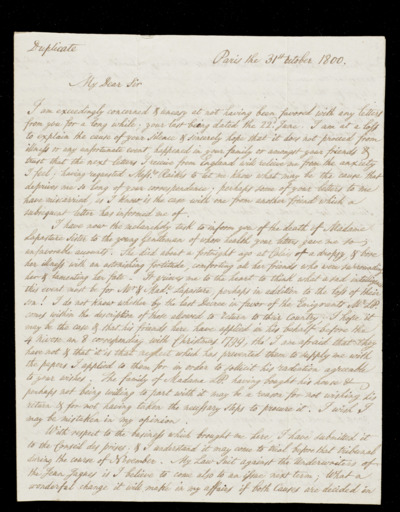 Duplicate
Paris the 31st October 1800.
My Dear Sir
I am exceedingly concerned & uneasy at not having been favored with any letters
from you for a long while, your last being dated the 22d June. I am at a loss
to explain the cause of your silence & sincerely hope that it does not proceed from
illness or any unfortunate event happened in your family or amongst your friends &
trust that the next letters I receive from England will relieve me from the anxiety
I feel, having requested Messrs to let me know what may be the cause that
deprives me so long of your correspondence; perhaps some of your letters to me
have miscarried, as I know is the case with one from another friend which a
subsequent letter has informed me of.
I have now the melancholy task to inform you of the death of Madame
Laparture Sister to the young Gentleman of whose health your letters gave me so
unfavorable accounts. She died about a fortnight ago at of a dropsy, & bore
her illness with an astonishing fortitude, comforting all her friends who were surrounding
her & lamenting her fate. It grieves me to the heart to think what a sad intelligence
this event must be for Mr & Laparture perhaps in addition to the loss of their
son! I do not know whether by the last Decree in favor of the Emigrants Mr
comes within the description of those allowed to return to their Country; I hope it
may be the case & that his friends here have applied in his behalf before the
4 nivose an 8 corresponding with Christmas 1799, tho' I am afraid that they
have not & that it is their neglect which has prevented them to supply me with
the papers I applied to them for in order to solicit his radiation agreeable
to your wishes; The family of Madame having bought his house &
perhaps not being willing to part with it may be a reason for not wishing his
return & for not having taken the necessary steps to procure it. I wish I
may be mistaken in my opinion.
With respect to the business which brought me here I have submitted it
to the Conseil des prises, & I understand it may come to trial before that tribunal
during the course of November. My Law Suit against the Underwriters of
the is I believe to come also to an issue next term; What a
wonderful change it will make in my affairs if both Causes are decided in